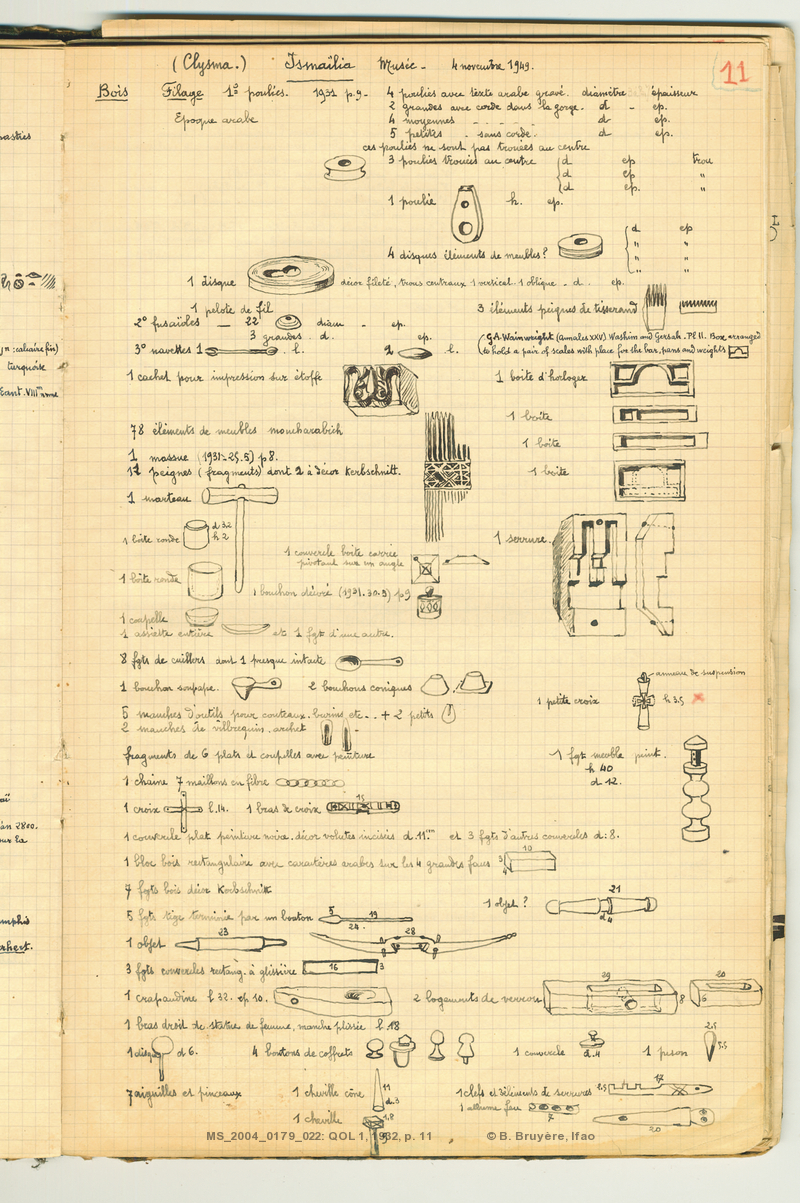 (Clysma.) Ismaïlia Musée - 4 novembre 1949.
11
Bois Filage 1° poulies. 1931 p.9- 4 poulies avec texte arabe gravé. diamètre. épaisseur
Epoque arabe
2 grandes avec corde dans la gorge. d - ep.
4 moyennes - - - - d - ep.
5 petites - sans corde. d ep.
ces poulies ne sont pas trouées au centre
3 poulies trouées au centre d ep trou
d ep "
d ep. "
1 poulie h. ep.
4 disques éléments de meubles? d ep
" "
" "
" "
1 disque décor fileté, trous centraux 1 vertical. 1 oblique - d. ep.
1 pelote de fil
3 éléments peignes de tisserand
2° fusaïoles — 22 diam - ep.
3 grandes d. ep.
3° navettes 1 . l. 2 l.
(G.A. Wainwright (annales XXV) Washim and Gersah. Pl II. Box arranged
to hold a pair of scales with place for the bar, pans and weights
1 cachet pour impression sur étoffe
1 boîte d'horloger
1 boîte
78 éléments de meubles moucharabieh
1 boîte
1 massue (1931-25.5) p8.
17 peignes (fragments) dont 2 à décor Kerbschnitt.
1 boîte
1 marteau
1 boîte ronde d 32 h 2
1 serrure.
1 couvercle boîte carrée
pivotant sur un angle
1 boîte ronde
1 bouchon décoré (1931.30.9) p9
1 coupelle
1 assiette entière et 1 fgt d'une autre.
8 fgts de cuillers dont 1 presque intacte
1 bouchon soupape. 2 bouchons coniques
anneau de suspension
1 petite croix h 3.5
5 manches d'outils pour couteaux. burins, etc.. + 2 petits
2 manches de vilbrequin. archet
fragments de 6 plats et coupelles avec peinture
1 fgt meuble peint.
h 40
d 12.
1 chaîne 7 maillons en fibre
1 croix l.14. 1 bras de croix 15
1 couvercle plat peinture noire. décor volutes incisés d 11 et 3 fgts d'autres couvercles d: 8.
1 bloc bois rectangulaire avec caractères arabes sur les 4 grandes faces 10 3 4
7 fgts bois décor Kerbschnitt
1 objet ? 21 d 4
5 fgts tige terminée par un bouton 5 19 24.
1 objet 23 28
3 fgts couvercles rectang. à glissière 16 3
1 crapaudine l 32. ep 10. 2 logements de verrou 29 8 20 6
1 bras droit de statue de femme, manche plissée l 18
1 disque d 6. 4 boutons de coffrets 1 couvercle d.4 1 peson 2.5 5.5
7 aiguilles et pinceaux 1 cheville cône 11 d.3
1 clefs et 3 éléments de serrures 2.5 17
1 allume feu
1 cheville 1,8 20
MS_2004_0179_022: QOL 1, 1932, p. 11 © B. Bruyère, Ifao
turquoise